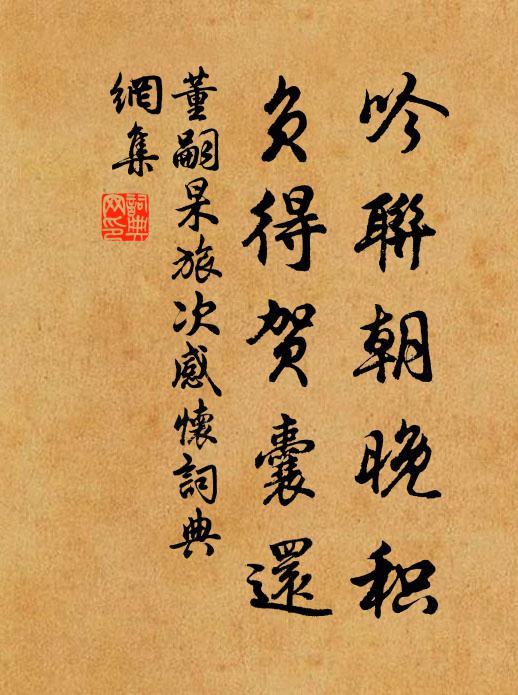 吟聯朝晚积
负得贺囊還
董嗣杲旅次感懷詞典
網集
詞典网印